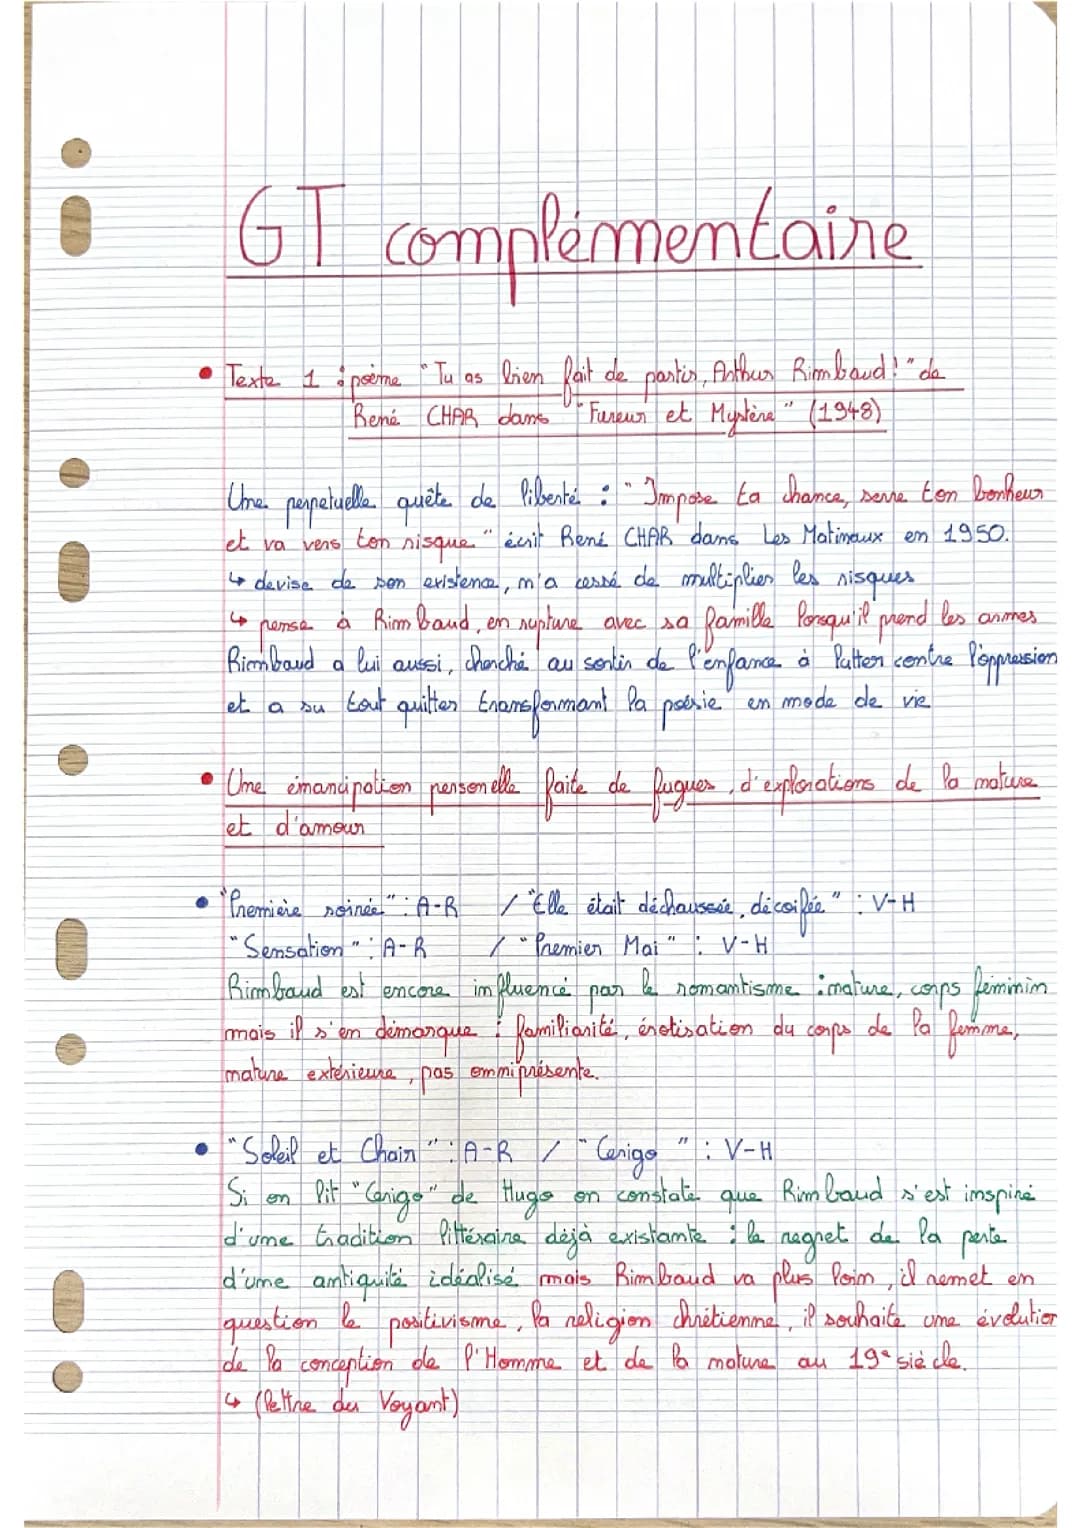 GT complémentaire
• Texte 1 : poème "Tu as bien fait de partir, Arthur Rimbaud!" de
René CHAR dans "Fureur et Mystère" (1948)
Une perpetuelle quête de liberté : "Impose ta chance, serre ton bonheur
et va vers ton risque" écrit René CHAR dans Les Matinaux en 1950.
↳ devise de son existence, n'a cessé de multiplier les risques
↳ pense à Rimbaud, en rupture avec sa famille lorsqu'il prend les armes
Rimbaud a lui aussi, cherché au sortir de l'enfance à lutter contre l'oppression
et a su tout quitter transformant la poésie en mode de vie
• Une émancipation personelle faite de fugues, d'explorations de la nature
et d'amour
• "Première soirée" : A-R / "Elle était déchaussée, décoifée" : V-H
"Sensation" : A-R / "Premier Mai" : V-H
Rimbaud est encore influencé par le romantisme : nature, corps féminin
mais il s'en démarque : familiarité, érotisation du corps de la femme,
nature extérieure, pas omniprésente.
• "Soleil et Chair" : A-R / "Cerigo" : V-H
Si on lit "Cerigo" de Hugo on constate que Rimbaud s'est inspiré
d'une tradition littéraire déjà existante : le regret de la perte
d'une antiquité idéalisé mais Rimbaud va plus loin, il remet en
question le positivisme, la religion chrétienne, il souhaite une évolution
de la conception de l'Homme et de la nature au 19e siècle.
↳ (lettre du Voyant)